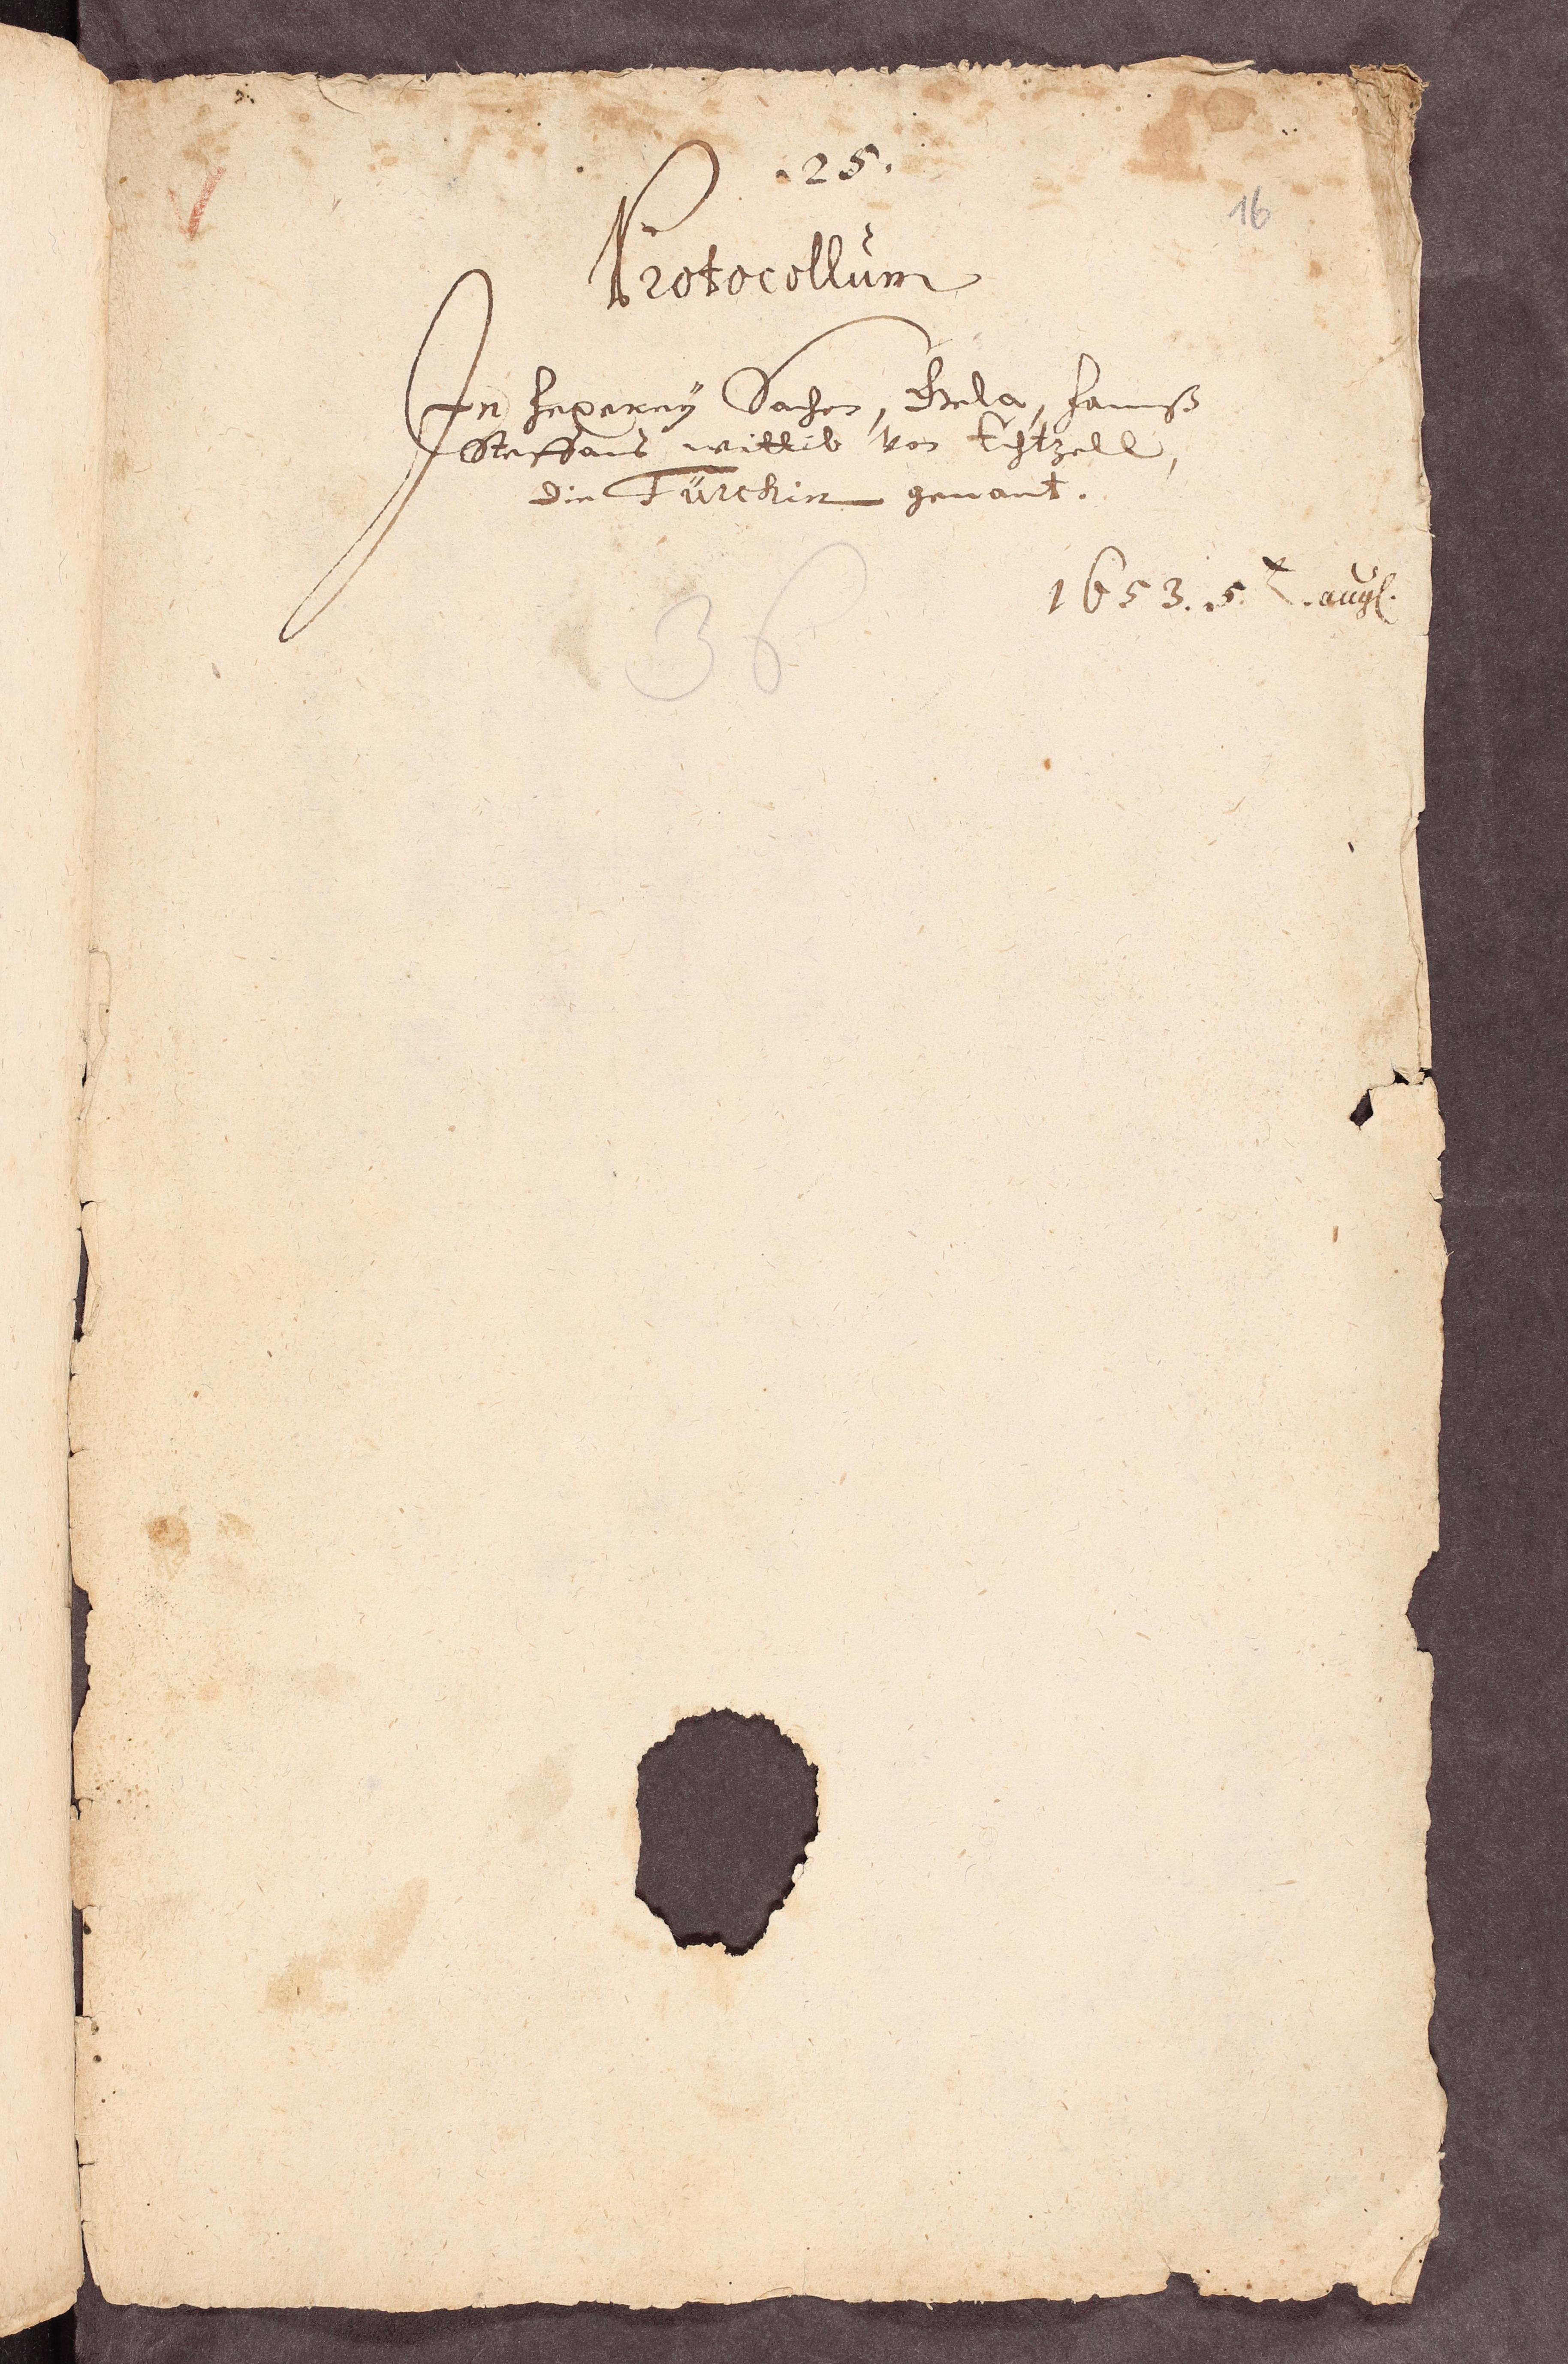 .25.
16
Protocollum
In hexerey Sachen, Ehela, hannß
Steffans wittib von Echtzell,
die Türckin genant.
1653. 5. aug.
36